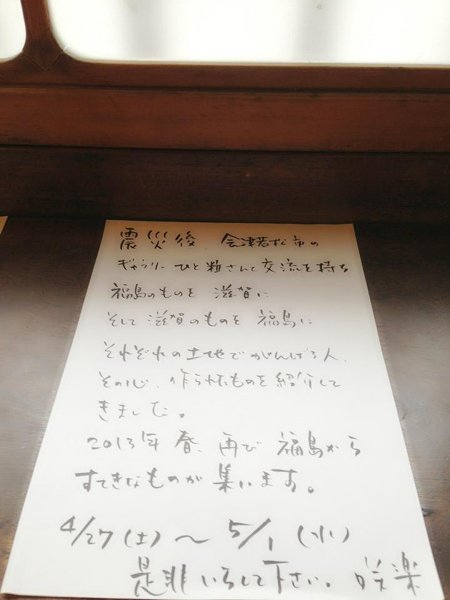 震災後、会津若松市の
ギャラリーひと粒さんと交流を持ち
福島のものを 滋賀に
そして滋賀のものを 福島に
それぞれの土地でがんばる人、
その心、作られたものを紹介して
きました。
2013年 春、再び 福島から
すてきなものが 集います。
4/27(土)〜5/1(水)
是非いらして下さい。 咲楽